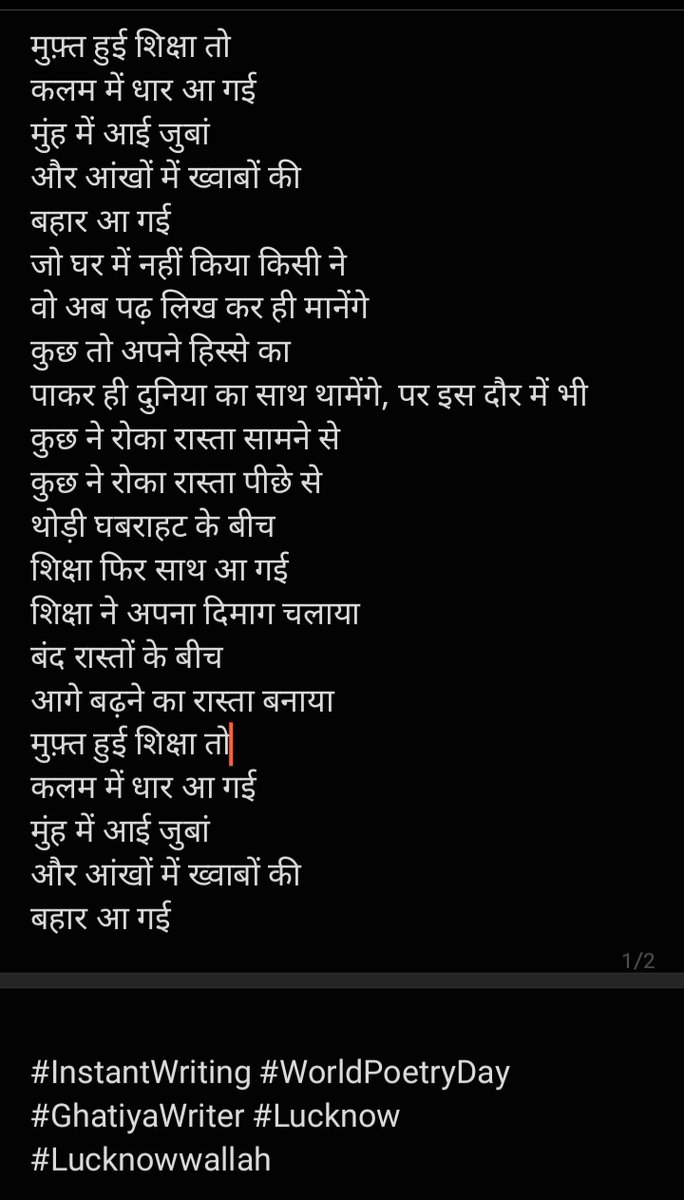 मुफ़्त हुई शिक्षा तो
कलम में धार आ गई
मुंह में आई जुबां
और आंखों में ख्वाबों की
बहार आ गई
जो घर में नहीं किया किसी ने
वो अब पढ़ लिख कर ही मानेंगे
कुछ तो अपने हिस्से का
पाकर ही दुनिया का साथ थामेंगे, पर इस दौर में भी
कुछ ने रोका रास्ता सामने से
कुछ ने रोका रास्ता पीछे से
थोड़ी घबराहट के बीच
शिक्षा फिर साथ आ गई
शिक्षा ने अपना दिमाग चलाया
बंद रास्तों के बीच
आगे बढ़ने का रास्ता बनाया
मुफ़्त हुई शिक्षा तो
कलम में धार आ गई
मुंह में आई जुबां
और आंखों में ख्वाबों की
बहार आ गई
1/2
#InstantWriting #WorldPoetryDay
#GhatiyaWriter #Lucknow
#Lucknowwallah